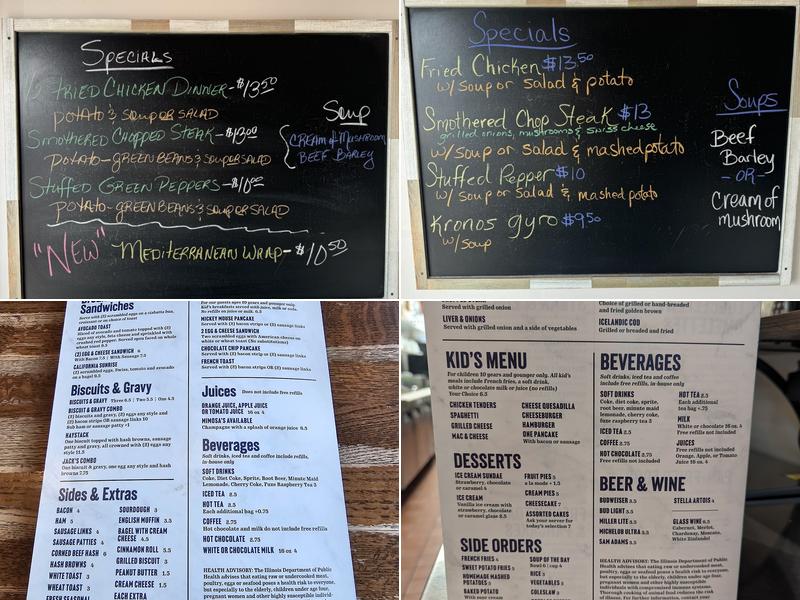 Specials
1/2 Fried Chicken Dinner - $13.50
Potato & Soup or Salad
Smothered Chopped Steak - $13.00
Potato - Green Beans & Soup or Salad
Stuffed Green Peppers - $10.00
Potato - Green Beans & Soup or Salad
"New" Mediterranean Wrap - $10.50
Soup
Cream of Mushroom
Beef Barley
Specials
Fried Chicken $13.50
w/ soup or salad & potato
Smothered Chop Steak $13
grilled onions, mushrooms & swiss cheese
w/ soup or salad & mashed potato
Stuffed Pepper $10
w/ soup or salad & mashed potato
Kronos gyro $9.50
w/ soup
Soups
Beef
Barley
- OR -
Cream of
mushroom
Sandwiches
Serve with (2) scrambled eggs on a ciabatta bun,
croissant or on choice of toast
AVOCADO TOAST
Sliced of avocado and tomato topped with (2)
eggs any style, feta cheese and sprinkled with
crushed red pepper. Served open faced on whole
wheat toast 9.5
(2) EGG & CHEESE SANDWICH
With Bacon 7.5 | With Sausage 7.5
CALIFORNIA SUNRISE
(2) scrambled eggs, Swiss, tomato and avocado
on a bagel 9.5
Biscuits & Gravy
BISCUITS & GRAVY Three 6.5 | Two 5.5 | One 4.5
BISCUIT & GRAVY COMBO
(2) biscuits and gravy, (2) eggs any style and
(2) bacon strips OR sausage links 10
Sub ham or sausage patty +2
HAYSTACK
One biscuit topped with hash browns, sausage
patty and gravy, all crowned with (2) eggs any
style 11.5
JACK'S COMBO
One biscuit & gravy, one egg any style and hash
browns 7.75
Sides & Extras
BACON 4
HAM 5
SAUSAGE LINKS 4
SAUSAGE PATTIES 4
CORNED BEEF HASH 6
HASH BROWNS 4
WHITE TOAST 3
WHEAT TOAST 3
FRESH SEASONAL
SOURDOUGH 3
ENGLISH MOFFIN 3.5
BAGEL WITH CREAM
CHEESE 4.5
CINNAMON ROLL 5.5
GRILLED BISCUIT 3
PEANUT BUTTER 1.5
CREAM CHEESE 1.5
EACH EXTRA
For our guests ages 10 years and younger only.
Kid's breakfasts served with juice, milk or soda.
No refills on juice or milk. 6.5
MICKEY MOUSE PANCAKE
Served with (2) bacon strips or (2) sausage links
EGG & CHEESE SANDWICH
Two scrambled eggs with American cheese
on white or wheat toast (No substitutions)
CHOCOLATE CHIP PANCAKE
Served with (2) bacon strips or (2) sausage links
FRENCH TOAST
Served with (2) bacon strips OR (2) sausage links
Juices Does not include free refills
ORANGE JUICE, APPLE JUICE
OR TOMATO JUICE 16 oz 4
MIMOSA'S AVAILABLE
Champagne with a splash of orange juice 6.5
Beverages
Soft drinks, iced tea and coffee include refills,
in-house only
SOFT DRINKS
Coke, Diet Coke, Sprite, Root Beer, Minute Maid
Lemonade, Cherry Coke, Fuze Raspberry Tea 3
ICED TEA 2.5
HOT TEA 2.5
Each additional tea bag +0.75
COFFEE 2.75
Hot chocolate and milk do not include free refills
HOT CHOCOLATE 2.75
WHITE OR CHOCOLATE MILK 16 oz 4
HEALTH ADVISORY: The Illinois Department of Public
Health advises that eating raw or undercooked meat,
poultry, eggs or seafood poses a health risk to everyone,
but especially to the elderly, children under age four,
pregnant women and other highly susceptible individ-
Served with grilled onion
LIVER & ONIONS
Served with grilled onion and a side of vegetables
Choice of grilled or hand-breaded
and fried golden brown
ICELANDIC COD
Grilled or breaded and fried
KID'S MENU
For children 10 years and younger only. All kid's
meals include French fries, a soft drink,
white or chocolate milk or juice (no refills)
Your Choice 6.5
CHICKEN TENDERS
SPAGHETTI
GRILLED CHEESE
MAC & CHEESE
CHEESE QUESADILLA
CHEESEBURGER
HAMBURGER
ONE PANCAKE
With bacon or sausage
DESSERTS
ICE CREAM SUNDAE
Strawberry, chocolate
or caramel 4
ICE CREAM
Vanilla ice cream with
strawberry, chocolate
or caramel glaze 2.5
FRUIT PIES 5
a la mode + 1.5
CREAM PIES 5
CHEESECAKE 5
ASSORTED CAKES
Ask your server for
today's selection 7
SIDE ORDERS
FRENCH FRIES 4
SWEET POTATO FRIES 5
HOMEMADE MASHED
POTATOES 3
BAKED POTATO
With sour cream
SOUP OF THE DAY
Bowl 5 | cup 4
RICE 3
VEGETABLES 3
COLESLAW 2
BEVERAGES
Soft drinks, iced tea and coffee
include free refills, in-house only
SOFT DRINKS
Coke, diet coke, sprite,
root beer, minute maid
lemonade, cherry coke,
fuze raspberry tea 3
ICED TEA 2.5
COFFEE 2.75
HOT CHOCOLATE 2.75
Free refills not included
HOT TEA 2.5
Each additional
tea bag +.75
MILK
White or chocolate 16 oz. 4
Free refills not included
JUICES
Free refills not included
Orange, Apple, or Tomato
Juice 16 oz. 4
BEER & WINE
BUDWEISER 3.5
BUD LIGHT 3.5
MILLER LITE 3.5
MICHELOB ULTRA 3.5
SAM ADAMS 3.5
STELLA ARTOIS 4
GLASS WINE 6.5
Cabernet, Merlot,
Chardonnay, Moscato,
White Zinfandel
HEALTH ADVISORY: The Illinois Department of Public
Health advises that eating raw or undercooked meat,
poultry, eggs or seafood poses a health risk to everyone,
but especially to the elderly, children under age four,
pregnant women and other highly susceptible
individuals with compromised immune systems.
Thorough cooking of animal food reduces the risk